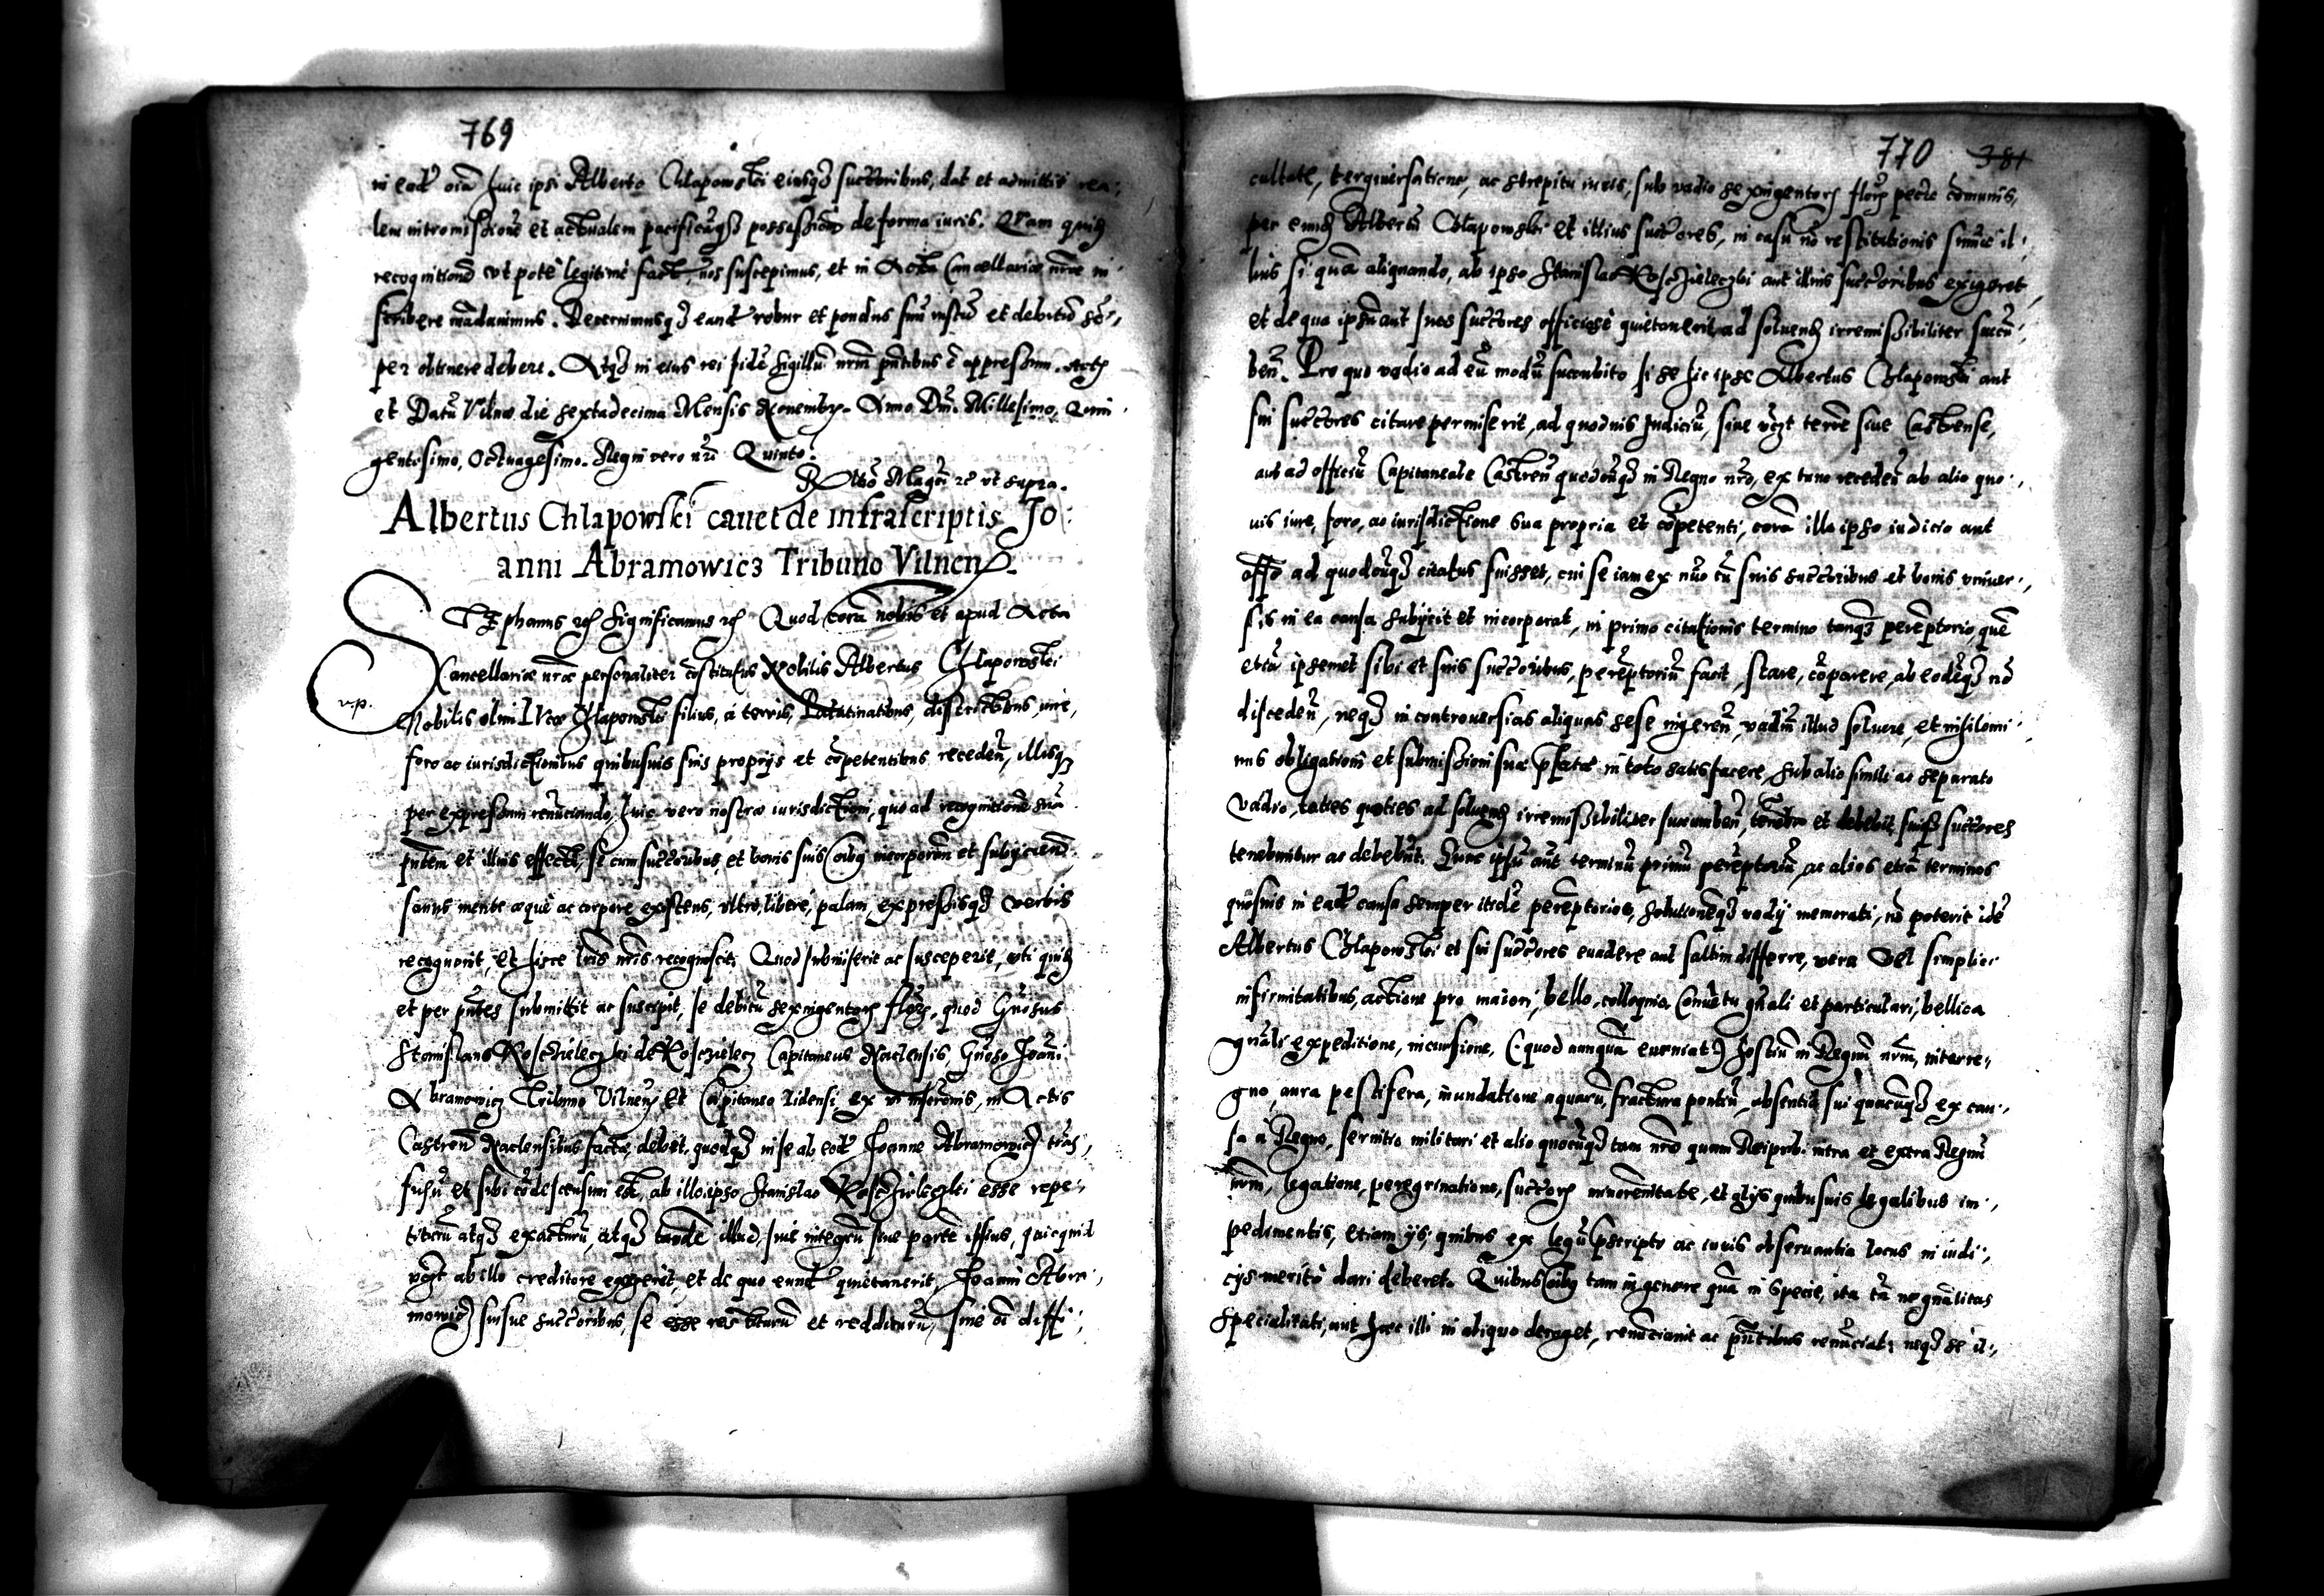 769
in ead. o͠ia huic ipsi Alberto Chlapowski eiusq3 succ͠oribus, dat et admittit rea-
lem intromission͠e et actualem pacificamq3 possessionem de forma iuris. Quam quid͠
recognitione͠ ut pote legitime fact͠, nos suscepimus, et in Acta Cancellariæ n͠ræ in-
scribere ma͠dauimus. Decernimusq3 eand͠ robur et pondus suu͠ iustu͠ et debitu͠ se͠-
per obtinere debere. Atq3 in eius rei fide͠ sigillu͠ n͠rm p͠ntibus e͠ appressum. Act͠
et Datu͠ Vilnæ die sextadecima Mensis Nouembr. Anno D͠ni. Millesimo, Quin-
gentesimo, Octuagesimo. Regni vero n͠ri Quinto.
R͠latio Mag͠ci rc ut supra.
Albertus Chlapowski cauet de infrascriptis Jo-
anni Abramowicz Tribuno Vilnen.
STephanus rc͠ Significamus rc͠ Quod cora͠ nobis et apud Acta
Cancellariæ n͠ræ personaliter co͠stitutus Nobilis Albertus Chlapowski
v.p.
Nobilis olim Chlapowski filius, á terris, Palatinatibus, districtibus, iure,
foro ac iurisdictionibus quibusuis suis proprijs et co͠petentibus receden͠, illisq3
per expressum renu͠ciando, huic vero nostræ iurisdictioni, quo ad recognitione͠ sua͠
p͠ntem et illius effectu͠, se cum succ͠oribus et bonis suis o͠ibq incorporan͠ et subijcien͠
sanus mente æque ac corpore existens, ultro, libere, palam, expressisq3 verbis
recognouit, et hisce l͠ris n͠ris recognoscit. Quod submiserit ac susceperit, uti quid͠
et per p͠ntes submittit ac suscipit, se debitu͠ sexingentor͠ flor͠, quod G͠nosus
Stanislaus Koschieleczki de Koschielecz Capitaneus Naclensis G͠noso Joa͠ni
Abramowicz Tribuno Vilnen͠ et Capitaneo Lidensi ex vi inscr͠onis, in Actis
Castren͠ Naclensibus factæ, debet, quodq3 in se ab eod͠ Joanne Abramowicz tra͠s-
fusu͠ et sibi co͠descensum est, ab illo ipso Stanislao Koschieleczki esse repe-
titiru͠ atq3 exacturu͠, atq3 tande͠ illud, siue integru͠ siue parte͠ ipsius, quicquid
v͠zt ab illo creditore exegerit, et de quo eund͠ quietauerit, Joanni Abra-
mowicz suisue succ͠oribus, se esse restituturu͠ et redditurū, sine o͠i diffi-
770 381
cultate, tergiuersatione, ac strepitu iuris, sub vadio sexingentor͠ flor͠ pec͠æ co͠munis,
per eund͠ Albertu͠ Chlapowski et illius succ͠ores, in casu no͠ restitutionis su͠mæ il-
lius si qua͠ aliquando, ab ipso Stanislao Koschieleczki aut illius succ͠oribus exigeret,
et de qua ipsu͠ aut suos succ͠ores officiose quietauerit, ad soluend͠ irremissibiliter succu͠-
ben͠. Pro quo vadio ad eu͠ modu͠ succubito si se hic ipse Albertus Chlapowski aut
sui succ͠ores citare permiserit, ad quoduis Judiciu͠, siue v͠zt terr͠e siue Castrense,
aut ad officiu͠ Capitaneale Castren͠ quodcu͠q3 in Regno n͠ro, ex tunc receden͠ ab alio quo-
uis iure, foro, ac iurisdictione sua propria et co͠petenti, cora͠ illo ipso iudicio aut
off͠o ad quodcu͠q3 citatus fuisset, cui se iam ex nu͠c cu͠ suis succ͠oribus et bonis vniuer-
sis in ea causa subijcit et incorporat, in primo citationis termino tanq3 pere͠ptorio que͠
etia͠ ipsemet sibi et suis succ͠oribus, pere͠ptoriu͠ facit, stare, co͠parere, ab eode͠q3 no͠
disceden͠, neq3 in controuersias aliquas sese ingeren͠, vadiu͠ illud soluere, et nihilomi-
nus obligationi et submissioni suæ p͠fatæ in toto satisfacere, sub alio simili ac separato
vadio, toties quoties ad soluend͠ irremissibiliter succumben͠, tenebr et debebit, suiq3 succ͠ores
tenebuntur ac debebu͠t. Hunc ipsu͠ aut͠ terminu͠ primu͠ pere͠ptoriu͠, ac alios etia͠ terminos
quosuis in ead͠ causa semper itide͠ pere͠ptorios, solutione͠q3 vadij memorati, no͠ poterit ide͠
Albertus Chlapowski et sui succ͠ores euadere aut saltim differre, vera vel simplici
infirmitatibus, actione pro maiori, bello, colloquio, Conue͠tu g͠nali et particulari, bellica
g͠nali expeditione, incursione, (:quod nunqua͠ eueniat:) hostiu͠ in Regnu͠ n͠rm, interre-
gno, aura pestifera, inundatione aquaru͠, fractura pontiu͠, absentia sui quacu͠q3 ex cau-
sa á Regno, seruitio militari et alio quocu͠q3 tam n͠ro quam Reipub. intra et extra Regnu͠
n͠rm, legatione, peregrinatione, succ͠or͠ minorennitate, et alijs quibusuis legalibus im-
pedimentis, etiam ijs, quibus ex legu͠ p͠scripto ac iuris obseruantia locus in iudi-
cijs merito dari deberet. Quibus o͠ibq tam in genere qua͠ in specie, ita ta͠ ne g͠nalitas
specialitati, aut hæc illi in aliquo deroget, renu͠ciauit ac p͠ntibus renu͠ciat; neq3 se il-